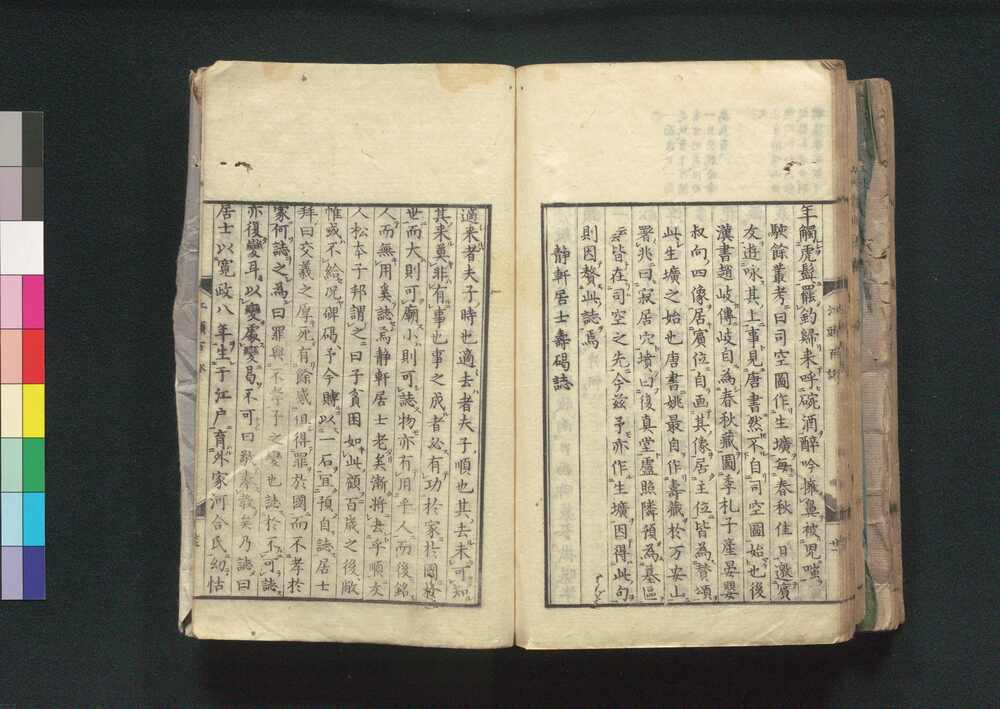 年觸虎鬚羅鈎歸来呼碗酒醉吟擁亀被児嗤
駛餘叢考曰司空圖作生壙毎春秋佳日邀賓
友遊咏其上事見唐書然不自司空圖始也後
漢書趙岐傳岐自為春秋藏圖季札子産晏嬰
叔向四像居賓位自画其像居主位皆為賛頌
此生壙之始也唐書姚最自作壽藏於万安山
署兆曰寂居穴墳曰復真堂盧照隣預為墓區
皆在司空之先今茲予亦作生壙因得此句
則因贅此誌焉
静軒居士壽碣誌
適来者夫子時也適去者夫子順也其去来可知
其来莫非有事也事之成者必有功於家於國於
世而大則可廟小則可誌物亦有用乎人而後銘
人而無用奚誌焉静軒居士老矣漸将去乎順友
人松本子邦謂之曰子貧困如此顧百歳之後敝
惟或不給况碑碣予今贈以一石宜預自誌居士
拜曰交義之厚死有餘感但得罪於國而不孝於
家何誌之為曰罪與不孝子之變也誌於不可誌
亦復變耳以變處變曷不可曰敬奉教矣乃誌曰
居士以寛政八年生于江戸育外家河合氏幼怙